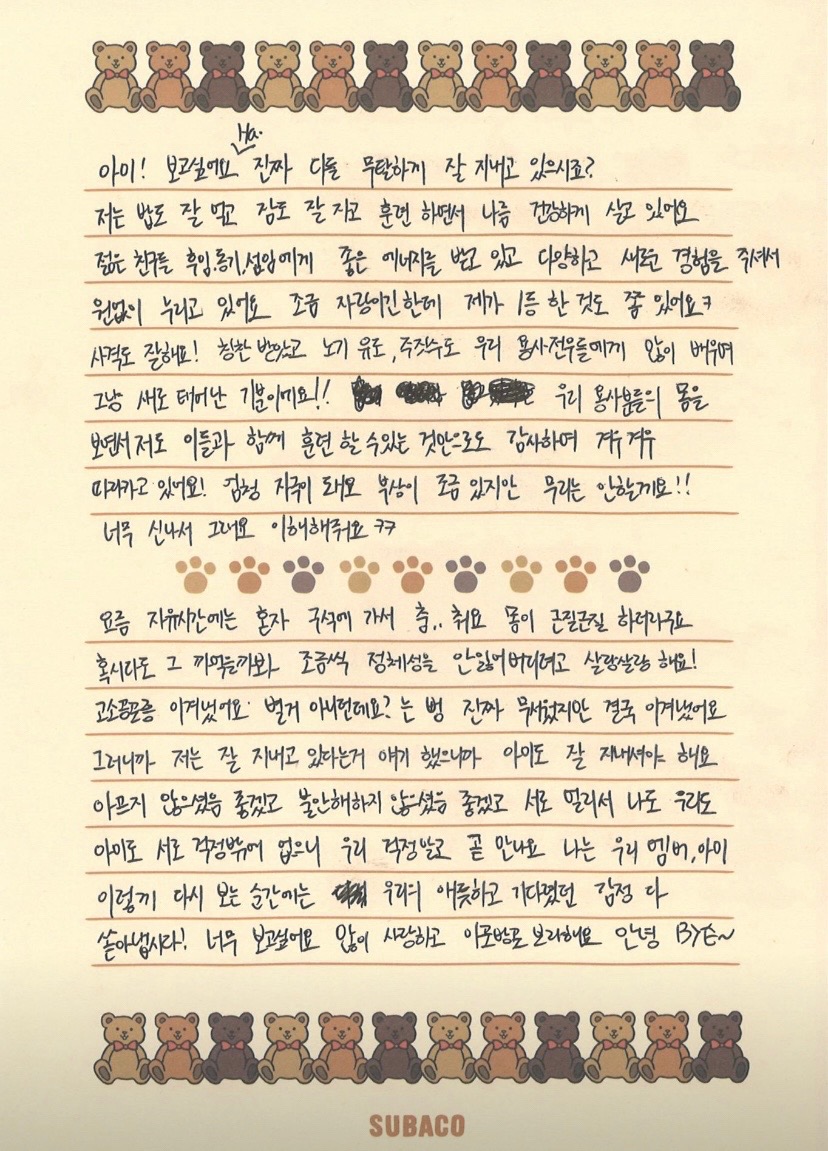 Ha.
아미! 보고싶어요 진짜 다들 무탈하게 잘 지내고 있으시죠?
저는 밥도 잘 먹고 잠도 잘 자고 훈련 하면서 나름 건강하게 살고 있어요
젊은 친구들 후임,동기,선임에게 좋은 에너지를 받고 있고 다양하고 새로운 경험을 주셔서
원없이 누리고 있어요 조금 자랑이긴한데 제가 1등 한 것도 쫌 있어요ㅋ
사격도 잘해요! 칭찬 받았고 노기 유도,주짓수도 우리 용사전우들에게 많이 배우며
그냥 새로 태어난 기분이에요!! 우리 용사분들의 몸을
보면서 저도 이들과 함께 훈련 할 수 있는 것만으로도 감사하며 겨우 겨우
따라가고 있어요! 엄청 자극이 돼요 부상이 조금 있지만 무리는 안할게요!!
너무 신나서 그래요 이해해줘요 ㅋㅋ
요즘 자유시간에는 혼자 구석에 가서 춤.. 춰요 몸이 근질근질 하더라구요
혹시라도 그 까먹을까봐 조금씩 정체성을 안잃어버리려고 살랑살랑 해요!
고소공포증 이겨냈어요 별거 아니런데요? 는 뻥 진짜 무서웠지만 결국 이겨냈어요
그러니까 저는 잘 지내고 있다는거 얘기 했으니까 아미도 잘 지내셔야 해요
아프지 않으셨음 좋겠고 불안해하지 않으셨음 좋겠고 서로 멀리서 나도 우리도
아미도 서로 걱정밖에 없으니 우리 걱정말고 곧 만나요 나는 우리 멤버,아미
이렇게 다시 보는 순간에는 우리의 애틋하고 기다렸던 감정 다
쏟아냅시다! 너무 보고싶어요 많이 사랑하고 아포방포 보라해요 안녕 BYE~
SUBACO